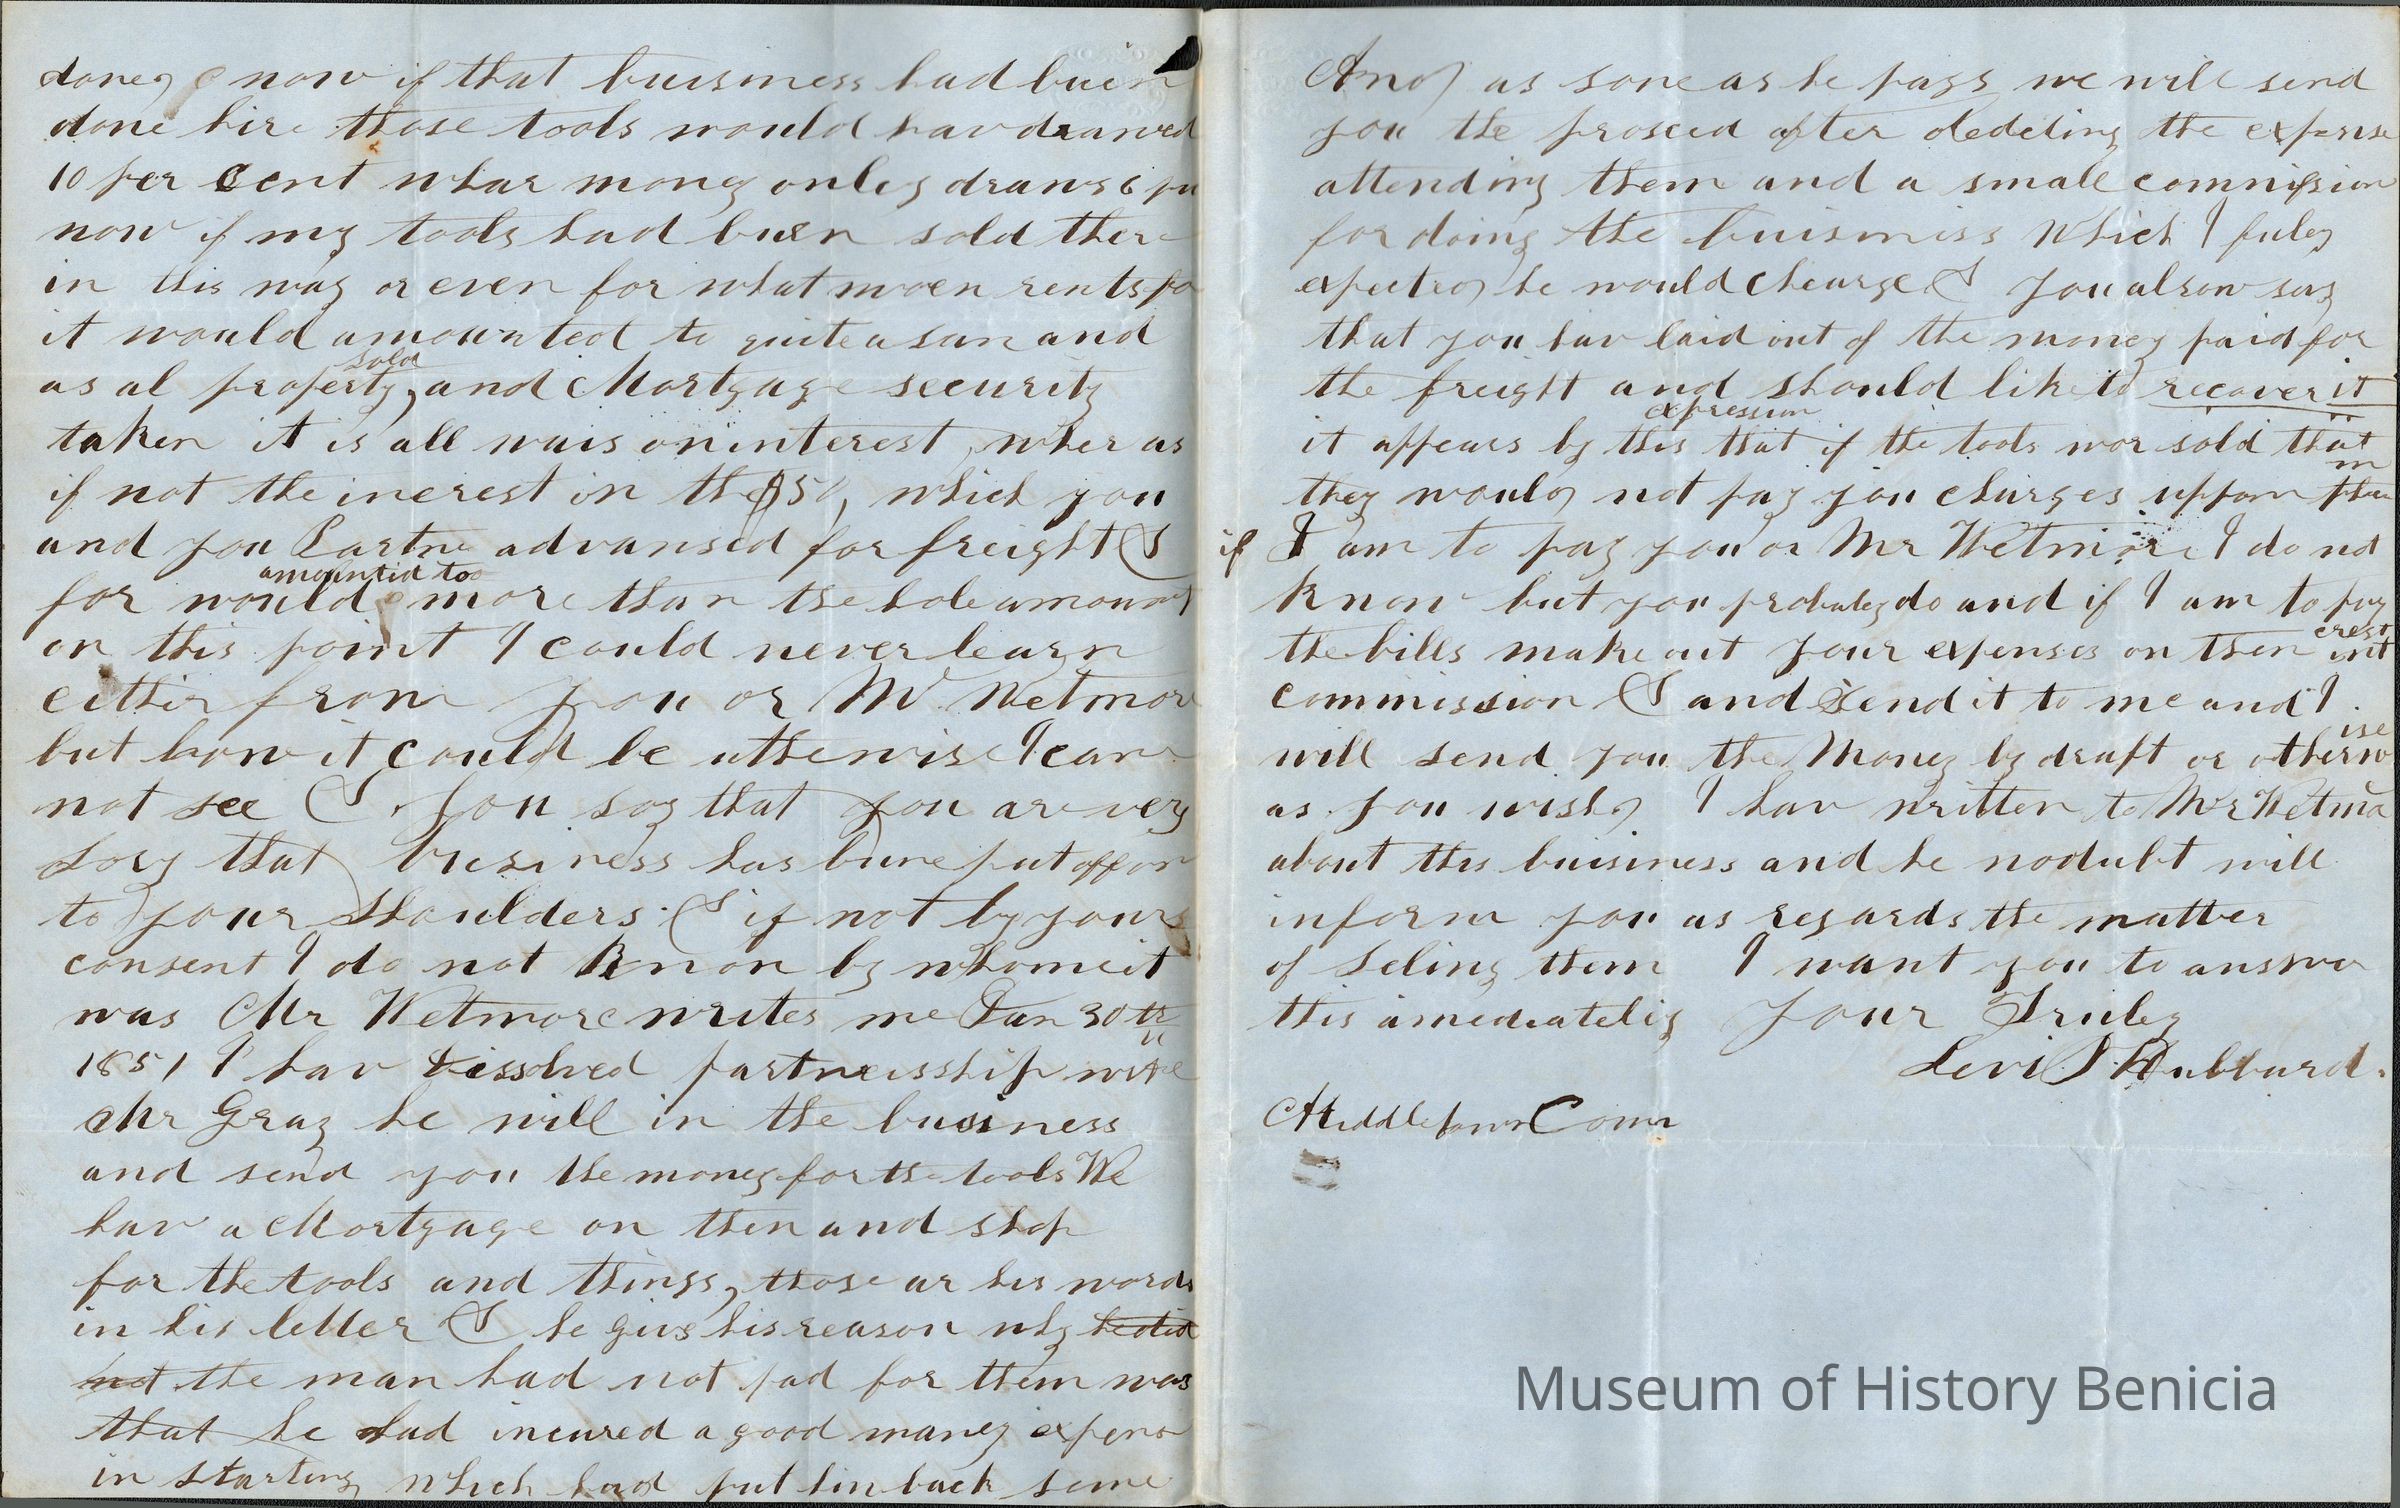 done, now if that buisiness had buein
done hire those tools would hav drawed
10 per cent whar money onley draws 6 pr
now if my tools had buen sold ther
in this way or even for what
it would amounted to quite a sum and
as al property, sold and Mortgage security
taken it is all wais on interest, wher as
if not the inerest in the $50, which you
and you Partne advansed for freight &
for would amountid too more than the hole amount
on this point I could never learn
eithir from you or Mr Wetmor
but how it could be uthewise I can
not see & you say that you ar very
sory that buisiness has bune put offon
to your shoulders & if not by your
consent I do not know by whome it
was Mr Wetmore writes me Jan 30th
1851 I hav dissolved partneisship with
Mr Gray he will in the business
and send you the money for the tools We
hav a Mortgage on then and shop
for the tools and things, those ar his words
in his letter & he give his reason why he did
not the man had not pad for them was
that he had incured a good maney expens
in starting which had put hin back some
And as sone as he pays we will send
you the proseed after dedcting the expense
attending them and a small commission
for doing the buisiness Which I fuley
expected he would chearge & You alsow say
that you hav laid out of the money paid for
the freight and should like to recover it
it appears by this expression that if the tools wor sold that
they would not pay you charges uppon them
if I am to pay you or Mr Wetmore I do not
know but you probabley do and if I am to pay
the bills make out your expenses on then interest
commission & and send it to me and I
will send you the Money by draft or otherwise
as you wish, I hav written to Mr Wetmo
about this buisiness and he nodubt will
inform you as regards the matter
of seling them I want you to answer
this amediateliy Your Truley
Levi S Hubbard.
Middletown Conn
Museum of History Benicia